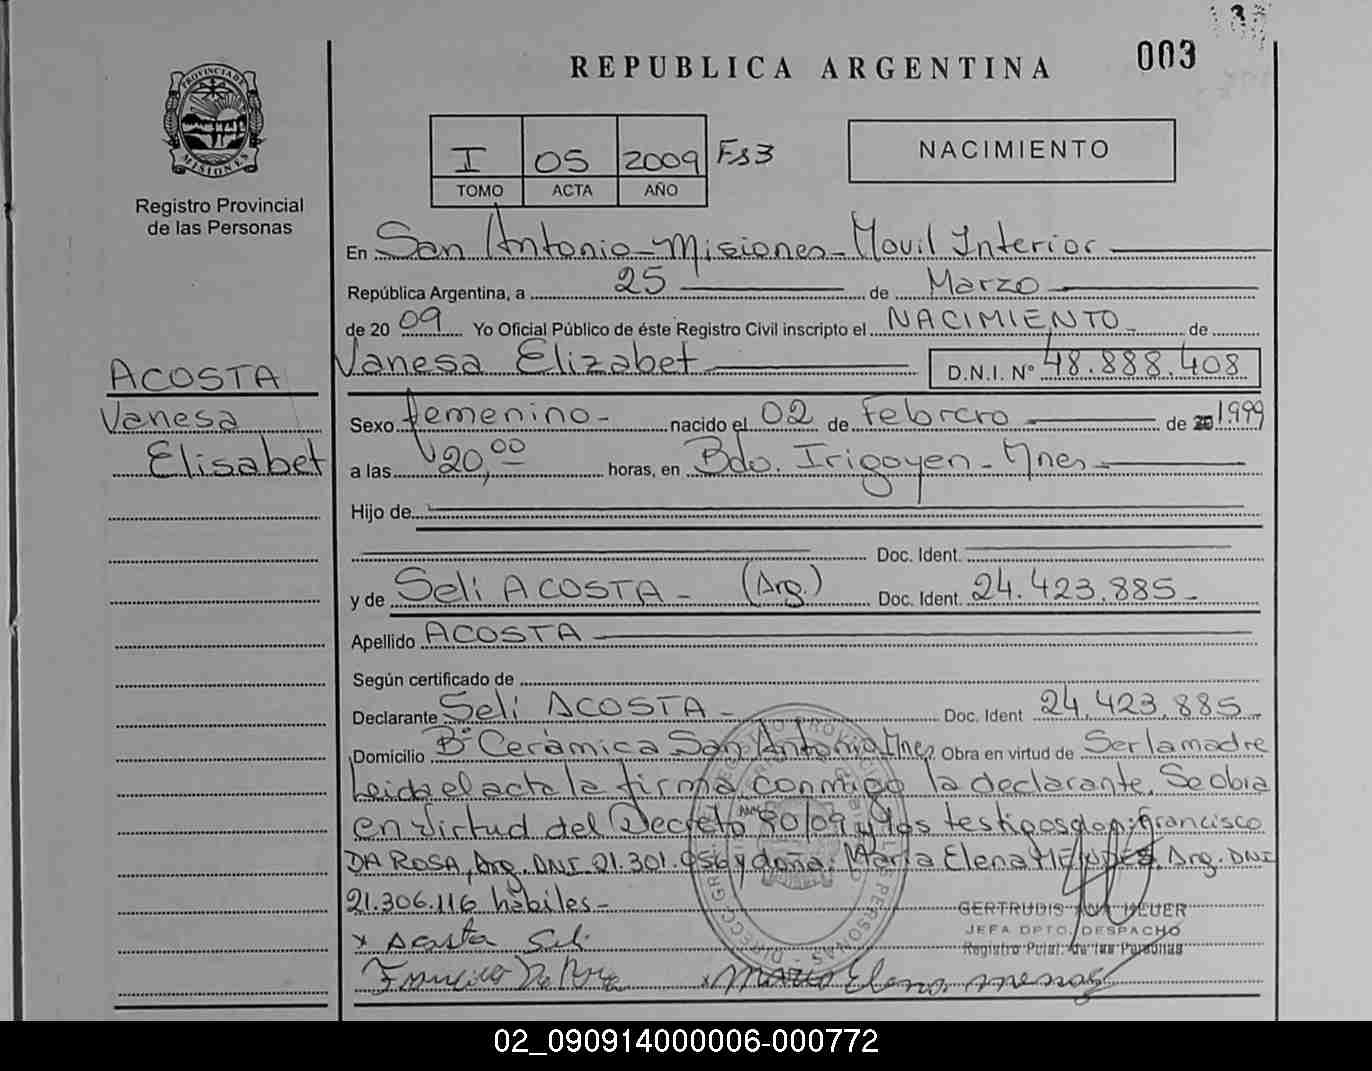 003
REPUBLICA ARGENTINA
PROVINCIA DE MISIONES
Registro Provincial
de las Personas
I 05 2009 Fs3
TOMO ACTA AÑO
NACIMIENTO
En San Antonio - Misiones - Movil Interior
República Argentina, a 25 de Marzo
de 20 09 Yo Oficial Público de éste Registro Civil inscripto el NACIMIENTO de
Vanesa Elizabet D.N.I. N° 48.888.408
ACOSTA
Vanesa
Elisabet
Sexo femenino - nacido el 02 de Febrero de 1999
a las 20,00 horas, en Bdo. Irigoyen - Mnes
Hijo de
Doc. Ident.
y de Seli ACOSTA - (Arg.) Doc. Ident. 24.423.885 -
Apellido ACOSTA
Según certificado de
Declarante Seli ACOSTA - Doc. Ident 24.423.885 -
Domicilio B° Cerámica San Antonio Mnes Obra en virtud de Ser la madre
Leida el acta la firma conmigo la declarante. Se obra
en virtud del Decreto 90/09 y los testigos don: Francisco
DA ROSA, Arg. DNI 21.301.956 y doña: Maria Elena MENDES. Arg. DNI
21.306.116 hábiles -
x Acosta Seli
Francisco Da Rosa x Maria Elena
GERTRUDIS ANA MEUER
JEFA DPTO. DESPACHO
Registro Pcial. de las Personas
02_090914000006-000772